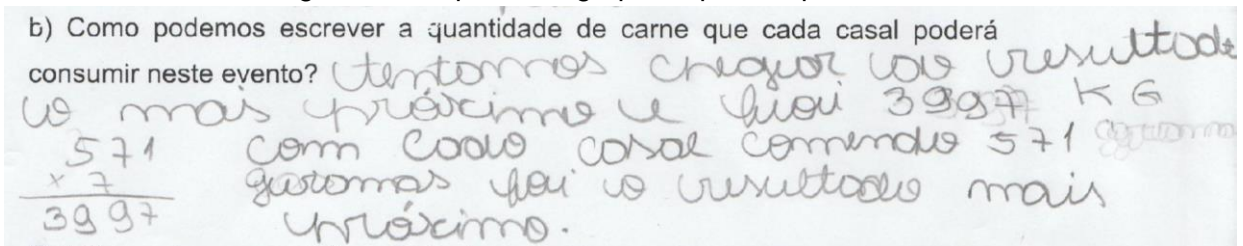 b) Como podemos escrever a quantidade de carne que cada casal poderá
consumir neste evento? Tentamos chegar ao resultado
o mais próximo e ficou 3997 KG
571 com cada casal comendo 571
x 7 garamas foi o resultado mais
3997 próximo.